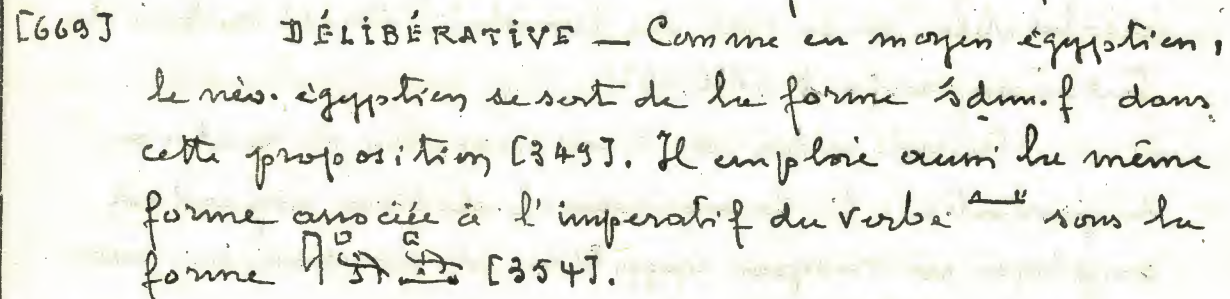 [669] DÉLIBÉRATIVE — Comme en moyen égyptien,
le néo-égyptien se sert de la forme śḏm.f dans
cette proposition [349]. Il emploie aussi la même
forme associée à l'impératif du verbe sous la
forme [354].